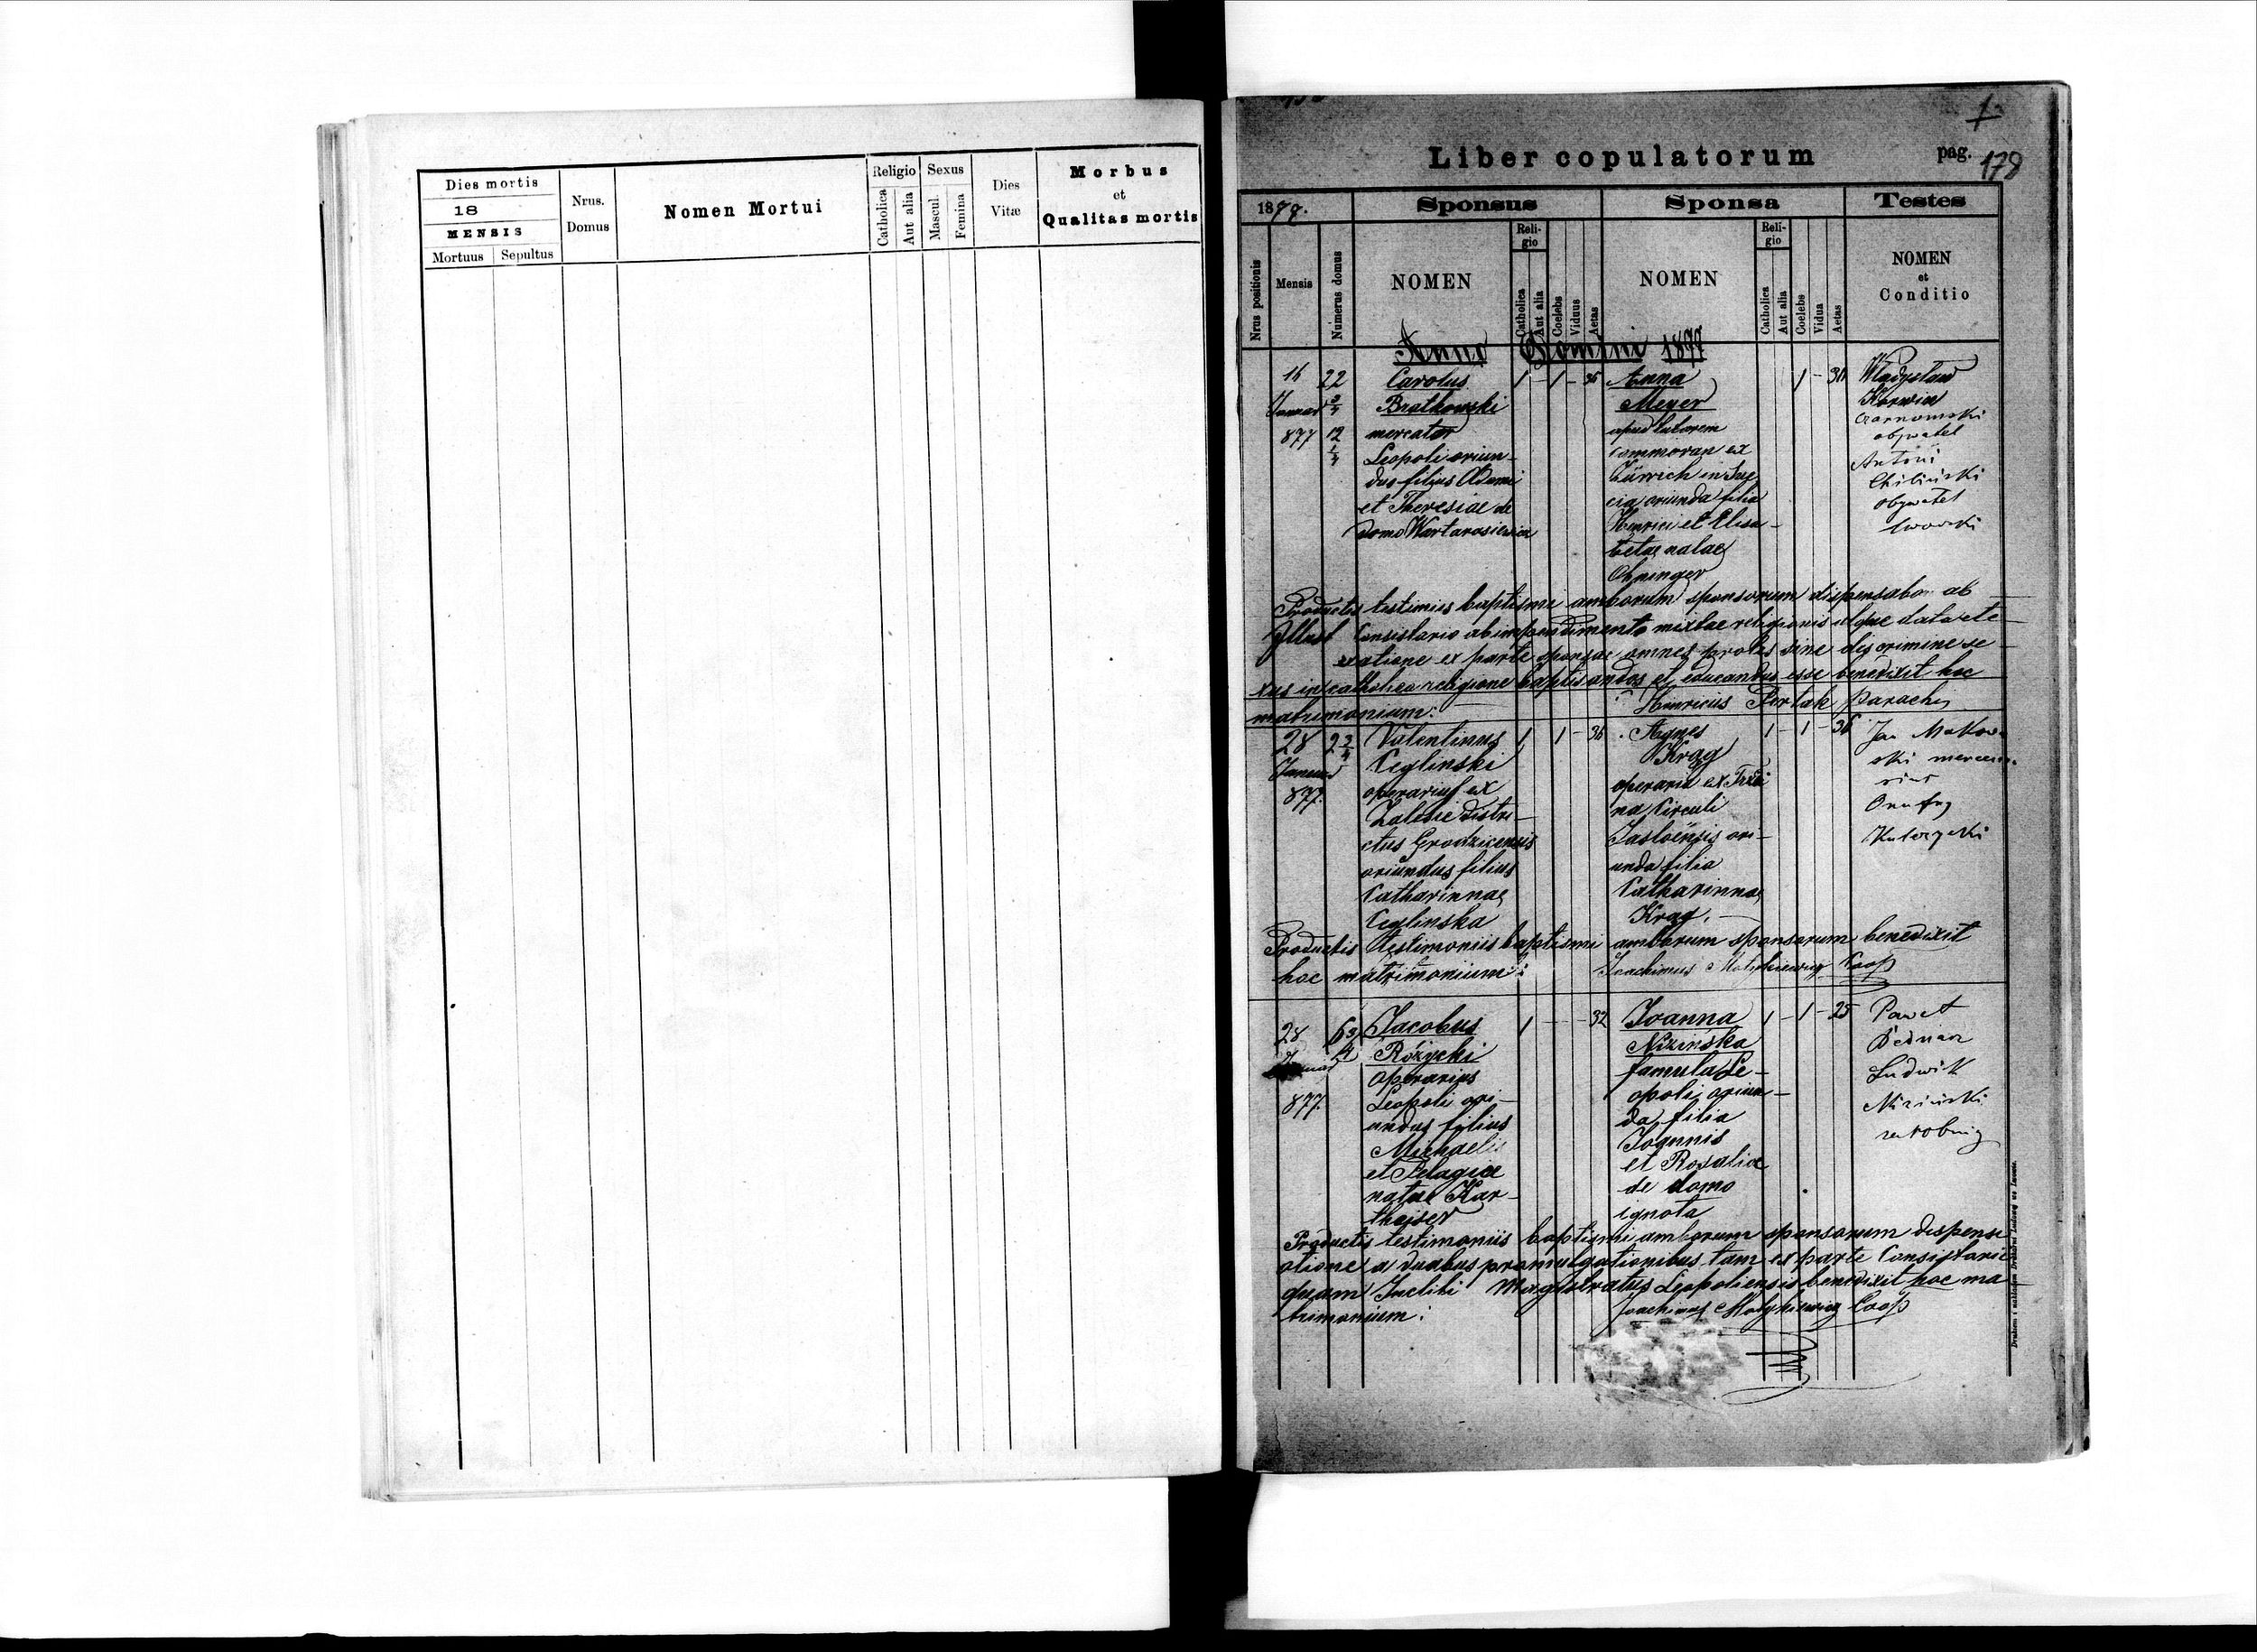 Dies mortis
18
MENSIS
Mortuus Sepultus
Nrus.
Domus
Nomen Mortui
Religio
Catholica
Aut alia
Sexus
Mascul.
Femina
Dies
Vitæ
Morbus
et
Qualitas mortis
1
Liber copulatorum
pag. 178
1877.
Sponsus
Sponsa
Testes
Nrus positionis
Mensis
Numerus domus
NOMEN
Reli-
gio
Catholica
Aut alia
Coelebs
Viduus
Aetas
NOMEN
Reli-
gio
Catholica
Aut alia
Coelebs
Vidua
Aetas
NOMEN
et
Conditio
Anno Domini 1877
16
Januar
877
22
3/4
12
1/4
Carolus
Bratkowski
mercator
Leopoli oriun-
dus filius Adami
et Theresiae de
domo Wartanasiewicz
1 - 1 - 36
Anna
Meyer
apud tutorem
commoran ex
Zürrich in
cia oriunda filia
Henrici et Elisa-
betae natae
Ohninger
Władysław
Korwin
Czarnomski
obywatel
Antoni
Chiliński
obywatel
lwowski
Productis testimiis baptismi amborum sponsorum dispensabo ab
Illust Consistorio ab impendimento mixtae religionis atque data
ex parte sponsae omnes proles sine discrimine se-
xus in catholica religione baptisandos et educandos esse benedixit hoc
matrimonium:
Henricus Portak Parach
28
Januar
877.
2 3/4
Valentinus
Ceglinski
operarius ex
Zalesie distri-
ctus Grodzicensis
oriundus filius
Catharinnae
Ceglinska
1 1 - 36
Agnes
Krag
operaria ex
na Circuli
Jasloensis ori-
unda filia
Catharinnae
Krag.
1 - 1 - 36
Jan Makow-
ski mercen-
Onufry
Productis testimoniis baptismi amborum sponsorum benedixit
hoc matrimonium:
Joachimus Matykiewicz Coop
28
Januar
877.
63/4
Jacobus
Różycki
operarius
Leopoli ori-
undus filius
Michaelis
et Pelagiae
natae Kar-
theiser
1 - - - 32
Joanna
Nizińska
famula Le-
opoli oriun-
da filia
Joannis
et Rosaliae
de domo
ignota
1 - 1 - 25
Paweł
Bednarz
Ludwik
Niziński
zarobnig
Productis testimoniis baptismi amborum sponsorum dispens
atione a duabus promulgationibus tam ex parte Consistorii
quam Incliti Magistratus Leopoliensis benedixit hoc ma
trimonium:
Joachimus Matykiewicz Coop